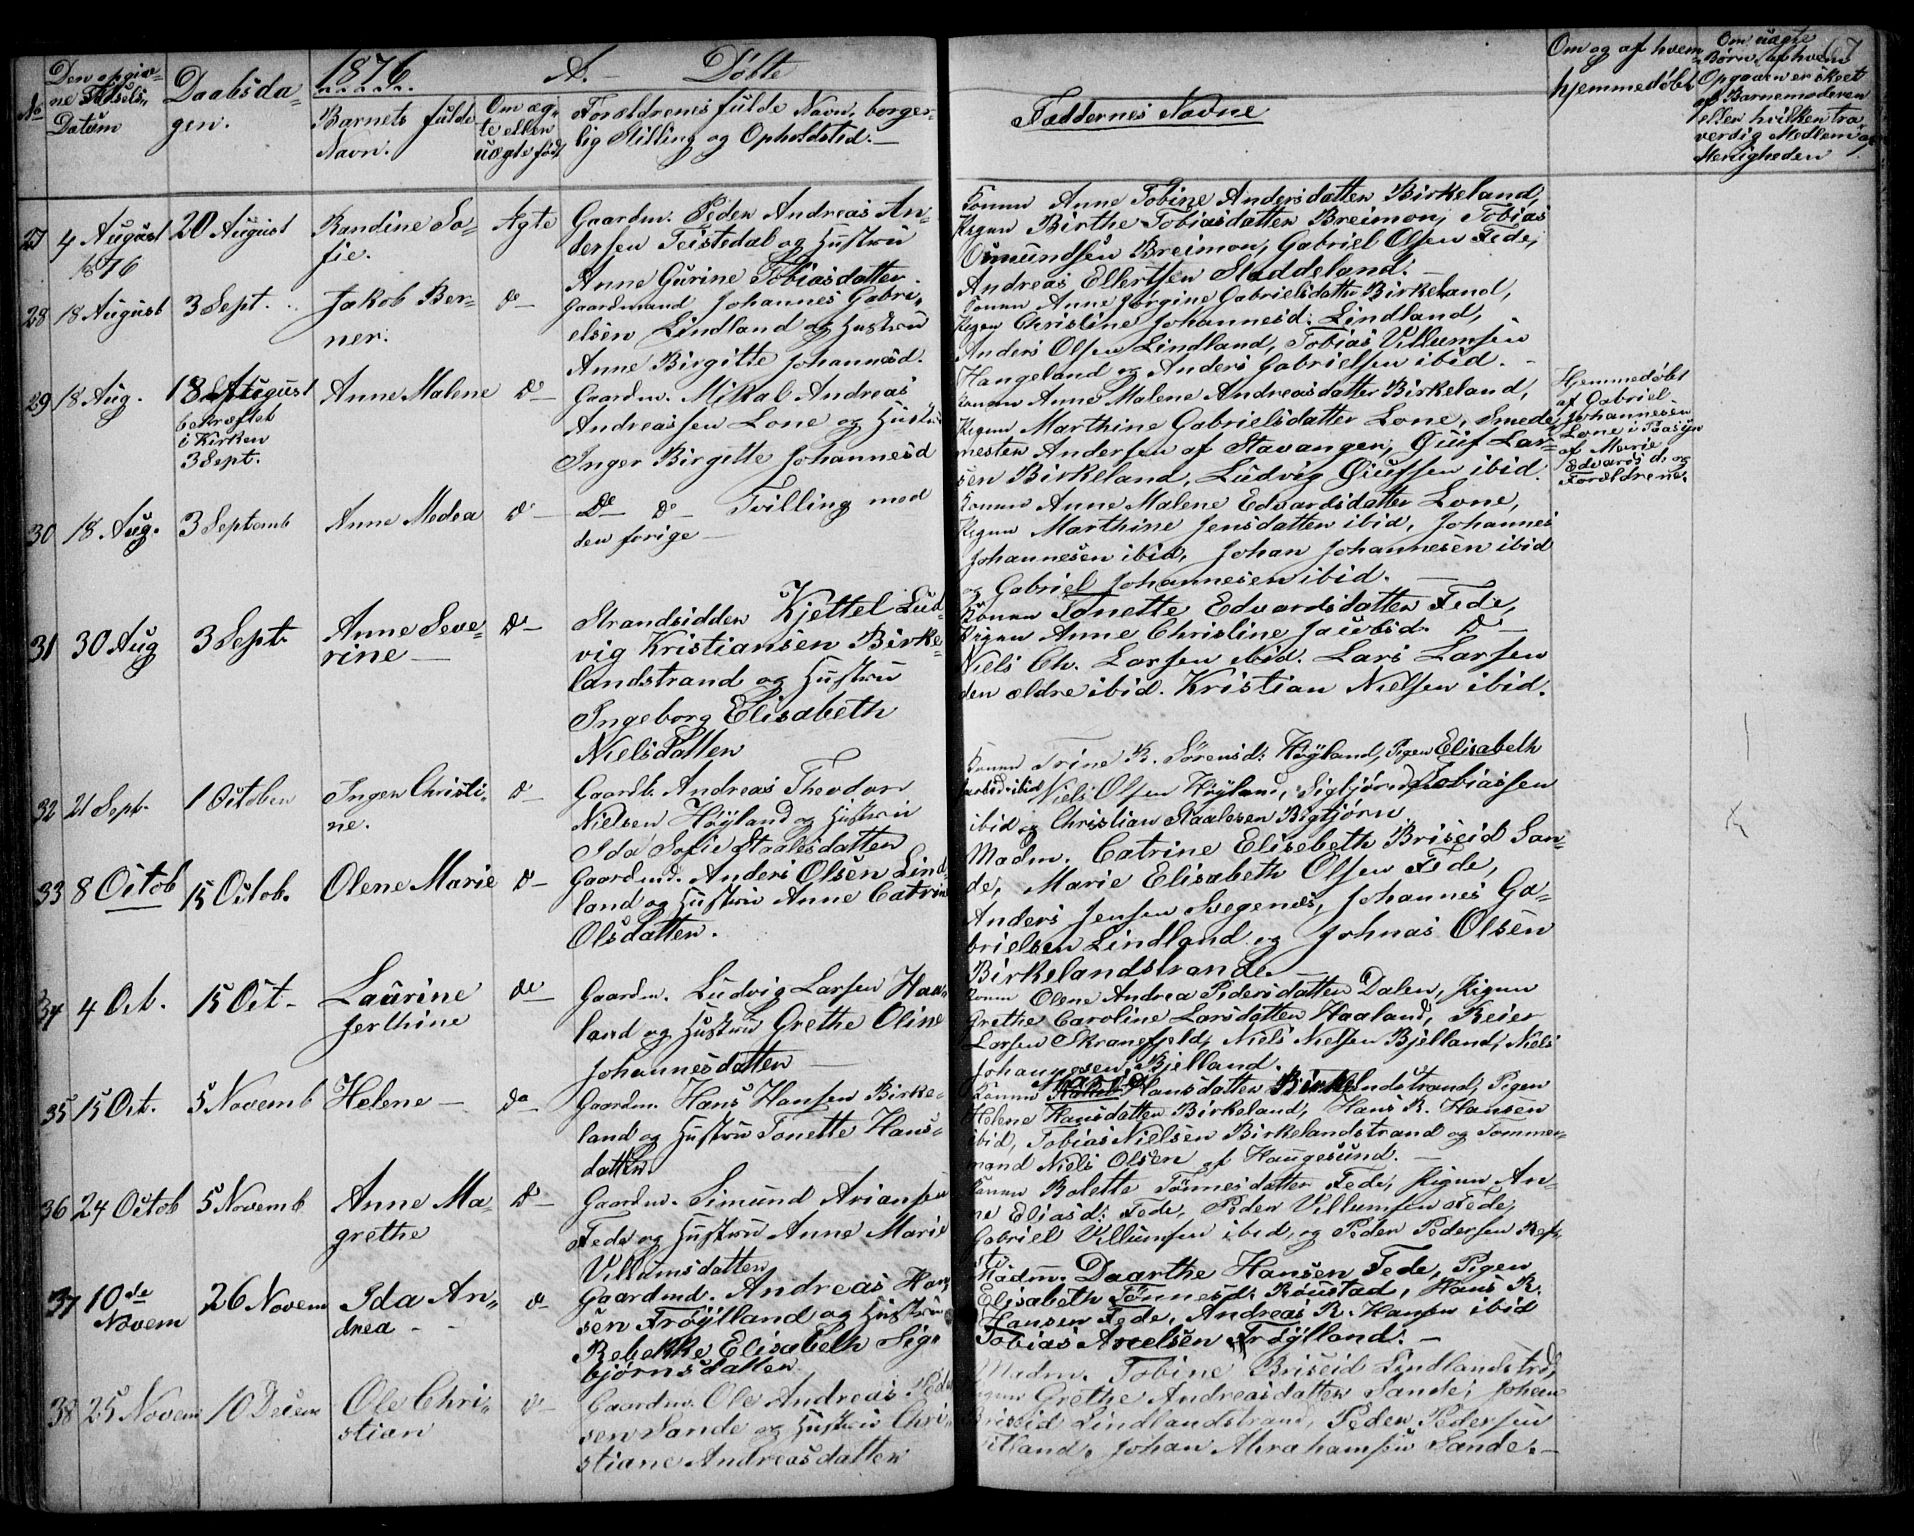 1876 A. — Döbte
67
No
Den opgiv-
ne Fødsels-
Datum
Daabsda-
gen.
Barnets fulde
Navn.
Om æg-
te eller
uægte født
Forældrenes fulde Navn, borger-
lig Stilling og Opholdsted. —
Faddernes Navne
Om og af hvem
hjemmedøbt
Om uægte
Børn, af hvem
Opgaven er skeet
af Barnemoderen
eller hvilken tro
verdig Medlem af
Menigheden
27 4 August 20 August Randine So- Ægte Gaardm. Peder Andreas An-
1876 fie. dersen Teistedal og Hustru
Anne Gurine Tobiasdatter
Konen Anne Tobine Andersdatter Birkeland,
Pigen Birthe Tobiasdatter Breimon, Tobias
Osmundsen Breimon, Gabriel Olsen Fede,
Andreas Ellertsen Staddeland. —
28 18 August 3 Sept. Jakob Ber- do— Gaardmand Johannes Gabri-
ner. elsen Lindland og Hustru
Anne Birgitte Johannesd.
Konen Anne Jørgine Gabrielsdatter Birkeland,
Pigen Christine Johannesd. Lindland,
Anders Olsen Lindland, Tobias Villumsen
Hangeland og Anders Gabrielsen ibid. —
29 18 Aug. 18 August Anne Malene do— Gaardm. Mikal Andreas
bekræftet Andreassen Lone og Hustru
i Kirken Inger Birgitte Johannesd
3 Sept.
Konen Anne Malene Andreasdatter Birkeland,
Pigen Marthine Gabrielsdatter Lone, Smede
mester Andersen af Stavanger, Guuf Lar-
sen Birkeland, Ludvig Guufsen ibid.
Hjemmedøbt
af Gabriel
Johannesen
Lone i Paasyn
af Marie
Edvardsd. og
Forældrene.
30 18 Aug. 3 Septemb Anne Medea do— do— do— Tvilling med
den forige —
Konen Anne Malene Edvardsdatter Lone,
Pigen Marthine Jensdatter ibid, Johannes
Johannesen ibid, Johan Johannesen ibid
og Gabriel Johannesen ibid. —
31 30 Aug 3 Sept. Anne Seve- do— Strandsidder Kjettel Lud-
rine — vig Kristiansen Birke-
landstrand og Hustru
Ingeborg Elisabeth
Nielsdatter
Konen Tonette Edvardsdatter Fede,
Pigen Anne Christine Jacobsd. do—
Niels Ch. Larsen ibid. Lars Larsen
den ældre ibid. Kristian Nielsen ibid.
32 21 Sept. 1 October Inger Christi- do— Gaardb. Andreas Theodor
ne. Nielsen Høyland og Hustru
Ida Sofie Staalesdatter
Konen Trine K. Sørensd. Høyland, Pigen Elisabeth
Niels Olsen Høyland, Sigbjørn Tobiassen
ibid og Christian Staalesen Bigtjørn.
33 8 Octob 15 Octob. Olene Marie do— Gaardmd. Anders Olsen Lind-
land og Hustru Anne Catrine
Olsdatter.
Madm. Catrine Elisebeth Briseid San-
de, Marie Elisabeth Olsen Fede,
Anders Jensen Svegenes, Johannes Ga-
brielsen Lindland og Johnas Olsen
Birkelandstrand.
34 4 Oct. 15 Oct. Laurine do— Gaardm. Ludvig Larsen Haa-
Jerthine land og Hustru Grethe Oline
Johannesdatter —
Konen Olene Andrea Pedersdatter Dalen, Pigen
Grethe Caroline Larsdatter Haaland, Reier
Larsen Skranefjeld, Niels Nielsen Bjelland, Niels
Johannesen Bjelland.
35 15 Oct. 5 Novemb Helene — do— Gaardm. Hans Hansen Birke-
land og Hustru Tonette Hans-
datter
Konen Hansdatter Birkelandstrand, Pigen
Helene Hansdatter Birkeland, Hans R. Hansen
ibid, Tobias Nielsen Birkelandstrand og Tømmer-
mand Niels Olsen af Haugesund. —
36 24 Octob 5 Novemb Anne Ma- do— Gaardm. Simund Ariansen
grethe Fede og Hustru Anne Marie
Villumsdatter
Konen Bolette Tønnesdatter Fede, Pigen An-
ne Eliasd: Fede, Peder Villumsen Fede,
Gabriel Villumsen ibid, og Peder Pedersen
37 10de 26 Novem Ida An- do Gaardmd. Andreas Han-
Novem drea - - sen Frøylland og Hustru
Rebekke Elisabeth Sig-
bjørnsdatter
Madm. Daarthe Hansen Fede, Pigen
Elisabeth Tønnesd. Røustad, Hans R.
Hansen Fede, Andreas R. Hansen ibid
Tobias Axelsen Frøylland. —
38 25 Novem 10 Decem Ole Chri- do— Gaardm. Ole Andreas Peder
stian sen Sande og Hustru Chri-
stiane Andreasdatter
Madm. Tobine Briseid Lindlandstrd,
Pigen Grethe Andreasdatter Sande, Johan
Briseid Lindlandstrand, Peder Pedersen
Johan Abrahamsen Sande. —